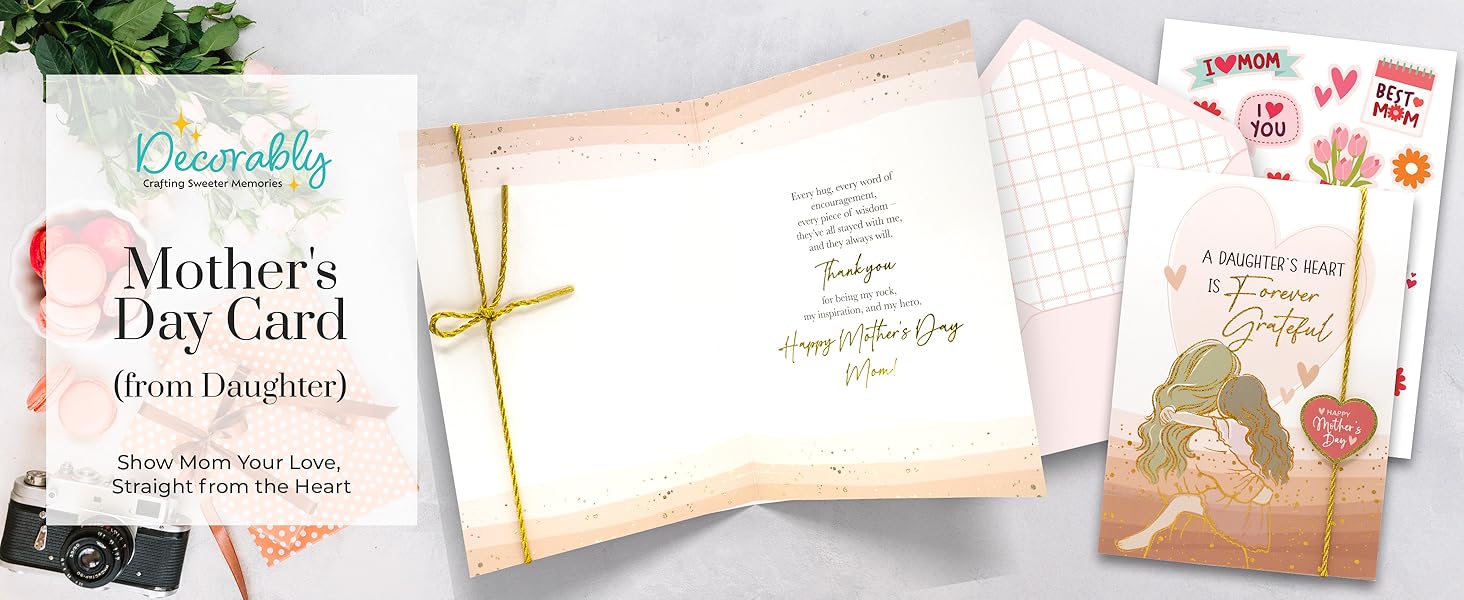 Decorably
Crafting Sweeter Memories
Mother's
Day Card
(from Daughter)
Show Mom Your Love,
Straight from the Heart
Every hug, every word of
encouragement,
every piece of wisdom –
they've all stayed with me,
and they always will.
Thank you
for being my rock,
my inspiration, and my hero.
Happy Mother's Day
Mom!
I MOM
I
YOU
BEST
MOM
A DAUGHTER'S HEART
IS Forever
Grateful
HAPPY
Mother's
Day